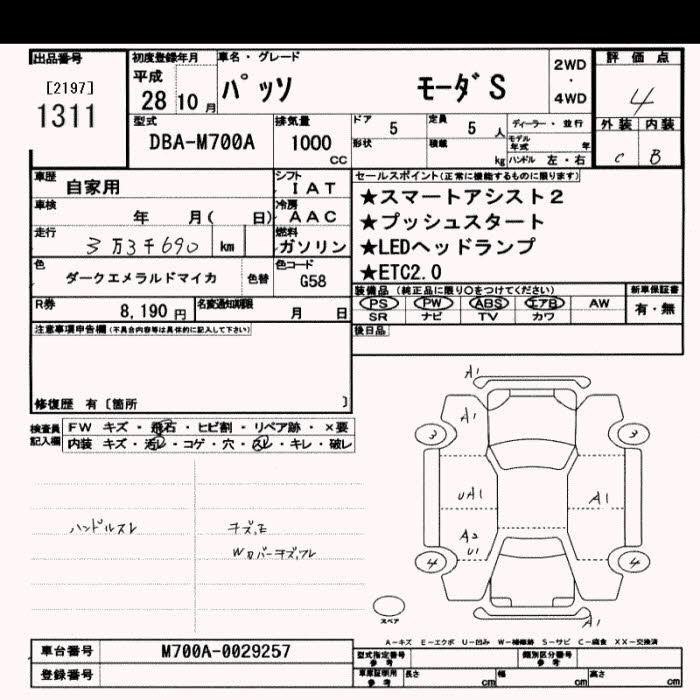 出品番号 初度登録年月 車名・グレード 評価点
[2197] 平成 パッソ モーダS 2WD
1311 28 10月 ・ 4
4WD
型式 排気量 ドア 5 定員 5 人 ディーラー・並行 外装 内装
DBA-M700A 1000 cc 形状 積載 kg モデル年式 年 C B
ハンドル 左・右
車歴 自家用 シフト IAT セールスポイント(正常に機能するものに限ります)
車検 年 月( 日) 冷房 AAC ★スマートアシスト2
走行 3万3千690 km 燃料 ガソリン ★プッシュスタート
色 ダークエメラルドマイカ 色替 色コード G58 ★LEDヘッドランプ
★ETC2.0
R券 8,190円 名変通知期限 月 日 装備品(純正品に限り○をつけてください) 新車保証書
PS PW ABS エアB AW 有・無
SR ナビ TV カワ
注意事項申告欄(不具合内容等は具体的に記入して下さい) 後日品
修復歴 有〔箇所 〕
検査員記入欄 FW キズ・飛石・ヒビ割・リペア跡・×要
内装 キズ・汚レ・コゲ・穴・スレ・キレ・破レ
A1
A1
3 3
UA1 A1
A2
U1
4 4
A1
ハンドルスレ
スペア
A-キズ E-エクボ U-凹み W-補修跡 S-サビ C-腐食 XX-交換済
車台番号 M700A-0029257 型式指定番号 参考 類別区分番号 参考
登録番号 車庫証明用 参考 長さ cm 幅 cm 高さ cm